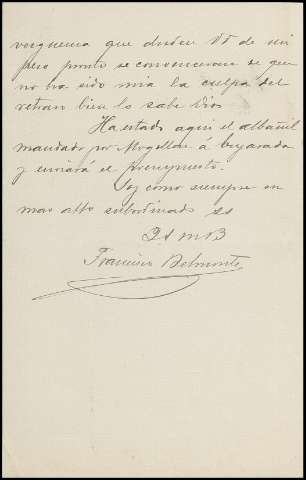 verguenza que duden Vd de mi
pero pronto se convenceran de que
no ha sido mia la culpa del
retraso bien lo sabe Dios
Ha estado aqui el albañil
mandado por Mogollon á
y enviará el presupuesto.
Soy como siempre su
mas afto subordinado ss
Q S M B
Francisco Belmonte